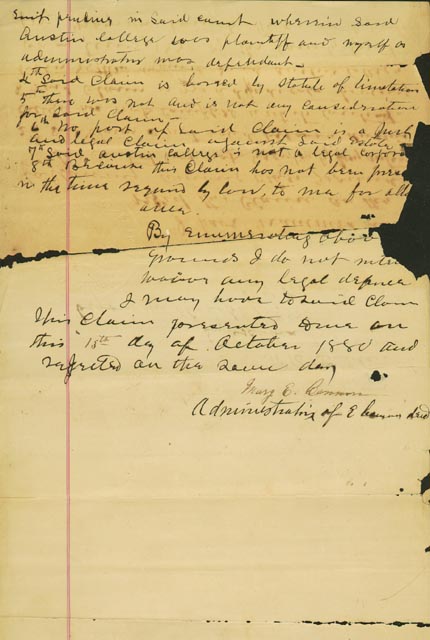 Suit pending in said court wherein said
Austin College was plaintiff and myself as
administratrix was defendant -
4th Said Claim is barred by Statute of limitation
5th there was not and is not any consideration
for said Claim -
6th No part of said Claim is a just
and legal Claim against Said Estate
7th Said Austin College is not a legal corpora
8th Because this Claim has not been presen
in the time required by law, to me for allo
ance
By enumerating above
grounds I do not inten
waiver any legal defence
I may have to said Claim
This Claim presented to me on
this 15th day of October 1880 and
rejected on the same day
Mary E. Cannon
Administratrix of E Cannon decd